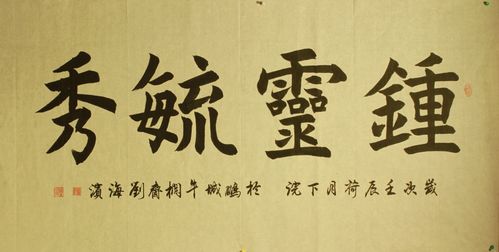 鍾靈毓秀
歲次壬辰荷月下浣 於鵬城牛棚齋劉海濱